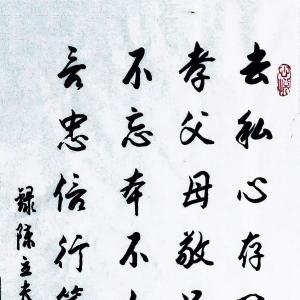 去私心存
孝父母敬
不忘本不
言忠信行
录陈立夫